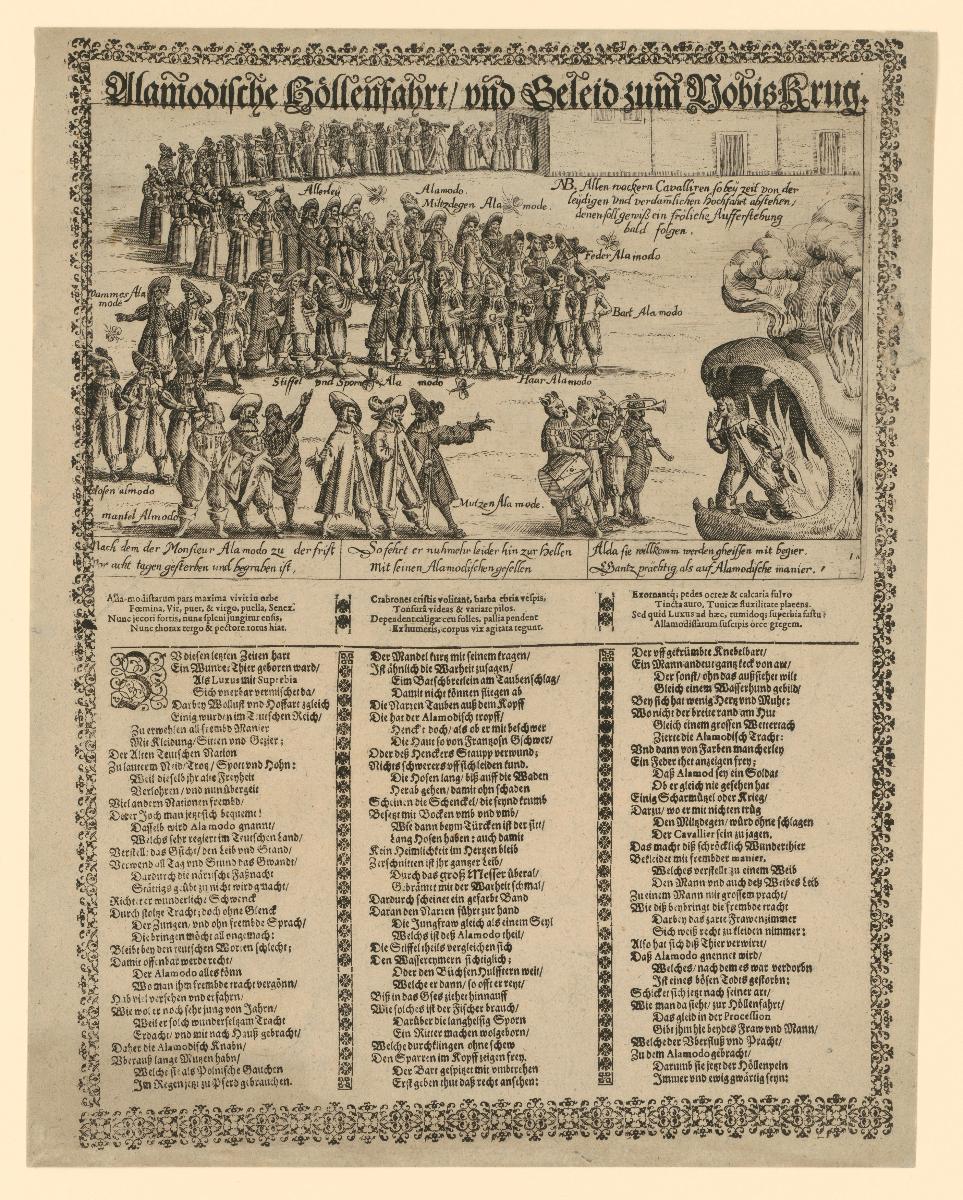 Alamodische Höllenfahrt/ vnd Geleid zum Nobis Krug.
Allerley Alamodo.
Miltzdegen Ala mode.
NB. Allen wackern Cavalliren so bey zeit von der
leydigen vnd verdamlichen Hochfahrt abstehen,
denen soll gewiß ein fröliche Aufferstehung
bald folgen.
Feder Ala modo
Wammes Ala
mode
Bart Ala modo
Stiffel vnd Sporn Ala modo
Haar Ala modo
Hosen almodo
mantel Almodo
Mutzen Ala mode.
Nach dem der Monsieur Ala modo zu der frist
Vor acht tagen gestorben und begraben ist,
So fehrt er nuhmehr leider hin zur Hellen
Mit seinen Alamodischen gesellen
Alda sie willkomm werden gheissen mit begier.
Gantz prächtig als auf Alamodische manier.
Alla-modistarum pars maxima vivit in orbe
Fœmina, Vir, puer, & virgo, puella, Senex.
Nunc jecori fortis, nunc pungitur ensis,
Nunc thorax tergo & pectore totus hiat.
Crabrones cristis volitant, barba ebria vespis,
Tonsurâ videas & variare pilos.
Dependent caligæ ceu folles, pallia pendent
Ex humeris, corpus vix agitata tegunt.
Exornantq; pedes octreæ & calcaria fulvo
Tincta auro, Tunicæ fluxilitate placens.
Sed quid Luxus ad hæc, tumidoq; superbia fastu?
Allamodistarum suscipis orce gregem.
ZU diesen letzten Zeiten hart
Ein Wunder Thier geboren ward/
Als Luxus mit Superbia
Sich vnerbar vermischet da/
Darbey Wollust vnd Hoffart zgleich
Einig wurden im Teutschen Reich/
Zu erwehlen all frembd Manier
Mit Kleidung/ Sitten vnd Gezier;
Der Alten Teutschen Nation
Zu lauterm Neid/ Trotz/ Spott vnd Hohn:
Weil dieselb jhr alte Freyheit
Verlohren/ vnd nun übergeit
Viel andern Nationen frembd/
Deren Joch man jetzt sich bequemt!
Dasselb wird Ala modo gnannt/
Welchs sehr regiert im Teutschen Land/
Verstell: das Gsicht/ den Leib vnd Stand/
Verwend all Tag vnd Stund das Gwandt/
Dardurch die närrische Faßnacht
Stätigs gübt zu nicht wird gmacht/
Richtet er wunderliche Schwenck
Durch stoltze Tracht; doch ohne Glenck
Der Zungen/ vnd ohn frembde Sprach/
Die bringen möcht all ongemach:
Bleibt bey den teutschen Worten schlecht;
Damit offenbar werde recht/
Der Alamodo alles könn
Wo man jhm frembde tracht vergönn/
Hab viel versehen vnd erfahrn/
Wie wol er noch sehr jung von Jahrn/
Weil er solch wunderseltzam Tracht
Erdacht/ vnd mit nach Hauß gebracht/
Daher die Alamodisch Knabn/
Vberauß lange Mutzen habn/
Welche sie als Polnische Gauchen
Im Regen jetzt zu Pferd gebrauchen.
Der Mandel kurtz mit seinem kragen/
Ist ähnlich die Warheit zusagen/
Eim Batschbretlein am Taubenschlag/
Damit nicht können fliegen ab
Die Narren Tauben auß dem Kopff
Die hat der Alamodisch tropff/
Henckt doch/ als ob er mit beschwer
Die Haut so von Frantzosn Gschwer/
Oder deß Henckers Staupp verwund;
Nichts schwerers vff sich leiden kund.
Die Hosen lang/ biß auff die Waden
Herab gehen/ damit ohn schaden
Scheinen die Schenckel/ die seynd krumb
Besetzt mit Bocken vmb vnd vmb/
Wie dann beym Türcken ist der sitt/
Lang Hosen haben: auch damit
Kein Heimlichkeit im Hertzen bleib
Zerschnitten ist jhr gantzer Leib/
Durch das groß Messer überal/
Gebrämet mit der Warheit schmal/
Dardurch scheinet ein gefarbt Band
Daran den Narren führt zur hand
Die Jungfraw gleich als einem Seyl
Welchs ist deß Alamodo theil/
Die Stiffel theils vergleichen sich
Den Wassereymern sichtiglich;
Oder den Büchsen Hulfftern weit/
Welche er dann/ so offt er reyt/
Biß in das Gses ziehet hinnauff
Wie solches ist der Fischer brauch/
Darüber die langhelsig Sporn
Ein Ritter machen wolgeborn/
Welche durchklingen ohne schew
Den Sparren im Kopff zeigen frey.
Der Bart gespitzt mit vmbtrehen
Erst geben thut daß recht ansehen:
Der vff gekrümbte Knebelbart/
Ein Mann andeut gantz keck von art/
Der sonst/ ohn das auß sieher wilt
Gleich einem Wasserhund gebild/
Bey sich hat wenig Hertz vnd Muht:
Wo nicht der breite rand am Hut
Gleich einem grossen Wetterdach
Zierte die Alamodisch Tracht:
Vnd dann von Farben mancherley
Ein Feder thet anzeigen frey;
Daß Alamod sey ein Soldat
Ob er gleich nie gesehen hat
Einig Scharmützel oder Krieg/
Darzu/ wo er mit nichten trüg
Den Miltzdegen/ würd ohne schlagen
Der Cavallier sein zu jagen.
Das macht diß schröcklich Wunderthier
Bekleidet mit frembder manier.
Welches verstelt zu einem Weib
Den Mann vnd auch deß Weibes Leib
Zu einem Mann mit grossem pracht/
Wie diß beybringt die frembde tracht
Darbey das zarte Frawenzimmer
Sich weiß recht zu kleiden nimmer:
Also hat sich diß Thier verwirrt/
Daß Alamodo gnennet wird/
Welches/ nach dem es war verdorbn
Ist eines bösen Todts gestorbn:
Schicket sich jetzt nach seiner art/
Wie man da sieht/ zur Höllenfahrt/
Das gleid in der Procession
Gibt jhm hie beydes Fraw vnd Mann/
Welche der Vberfluß vnd Pracht/
Zu dem Alamodo gebracht/
Darumb sie jetzt der Höllenpein
Immer vnd ewig gwärtig seyn: